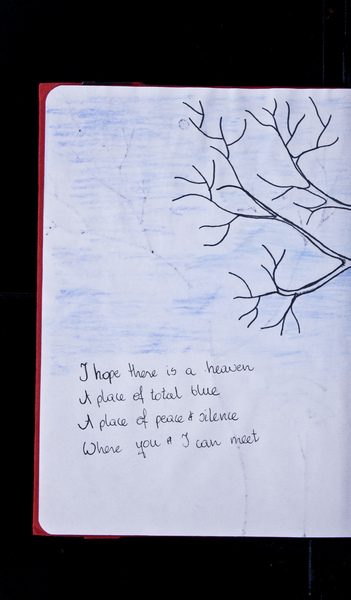 I hope there is a heaven
A place of total blue
A place of peace & silence
Where you & I can meet